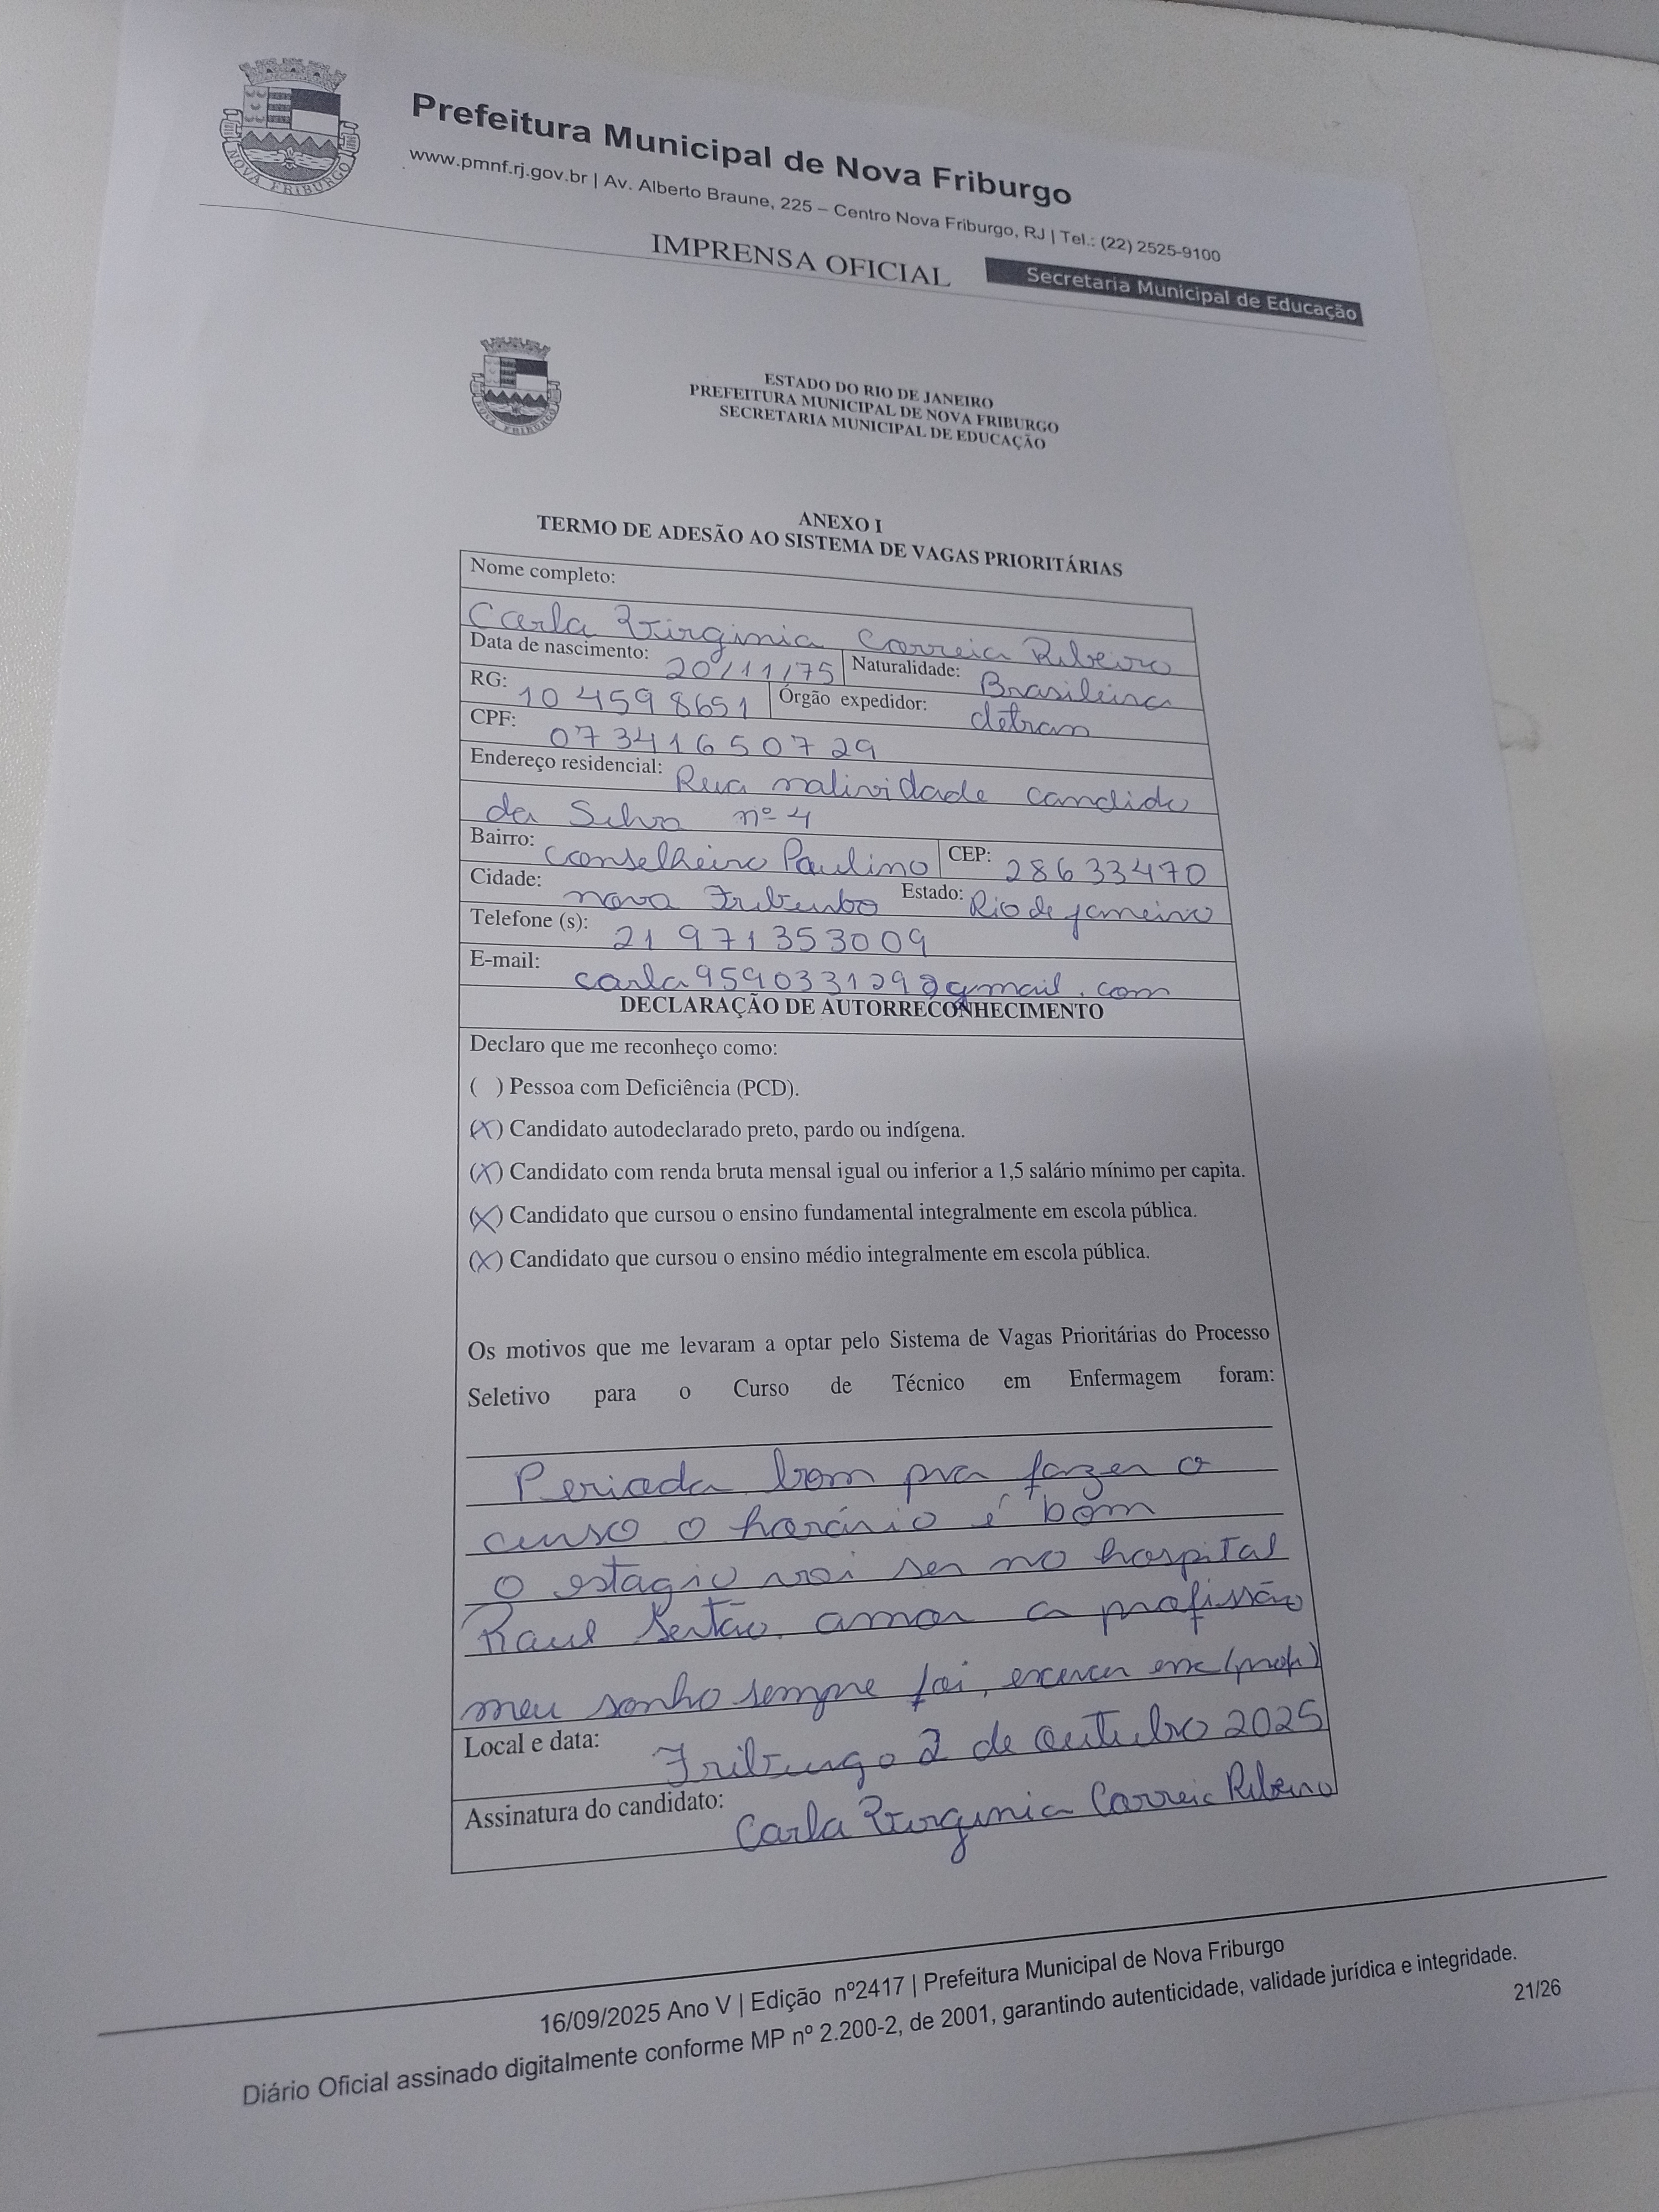 Prefeitura Municipal de Nova Friburgo
www.pmnf.rj.gov.br | Av. Alberto Braune, 225 – Centro Nova Friburgo, RJ | Tel.: (22) 2525-9100
IMPRENSA OFICIAL
Secretaria Municipal de Educação
NOVA FRIBURGO
NOVA FRIBURGO
ESTADO DO RIO DE JANEIRO
PREFEITURA MUNICIPAL DE NOVA FRIBURGO
SECRETARIA MUNICIPAL DE EDUCAÇÃO
ANEXO I
TERMO DE ADESÃO AO SISTEMA DE VAGAS PRIORITÁRIAS
Nome completo:
Carla Virginia Correia Ribeiro
Data de nascimento: 20/11/75 Naturalidade: Brasileira
RG: 10 4598651 Órgão expedidor: detran
CPF: 07341650729
Endereço residencial: Rua natividade candido
da Silva nº 4
Bairro: Conselheiro Paulino CEP: 28633470
Cidade: nova Estado: Rio de janeiro
Telefone (s): 21 971353009
E-mail: carla959033129@gmail.com
DECLARAÇÃO DE AUTORRECONHECIMENTO
Declaro que me reconheço como:
( ) Pessoa com Deficiência (PCD).
(X) Candidato autodeclarado preto, pardo ou indígena.
(X) Candidato com renda bruta mensal igual ou inferior a 1,5 salário mínimo per capita.
(X) Candidato que cursou o ensino fundamental integralmente em escola pública.
(X) Candidato que cursou o ensino médio integralmente em escola pública.
Os motivos que me levaram a optar pelo Sistema de Vagas Prioritárias do Processo
Seletivo para o Curso de Técnico em Enfermagem foram:
Perioda bom pra fazer o
curso o horário é bom
O estagio vai ser no hospital
Raul Sertão. amor a profissão
meu sonho sempre foi, exercer
Local e data: Friburgo 2 de outubro 2025
Assinatura do candidato: Carla Virginia Correia Ribeiro
16/09/2025 Ano V | Edição nº2417 | Prefeitura Municipal de Nova Friburgo
Diário Oficial assinado digitalmente conforme MP nº 2.200-2, de 2001, garantindo autenticidade, validade jurídica e integridade.
21/26